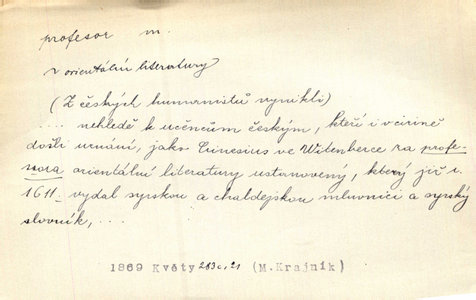 profesor m.
v orientální literatury
(Z českých humanistů vynikli)
... nehledě k učencům českým, kteří i v cizině
došli uznání, jako Cunesius ve Witenberce za profe-
sora orientální literatury ustanovený, který již r.
1611. vydal syrskou a chaldejskou mluvnici a syrský
slovník, ...
1869 Květy 283a,21 (M.Krajník)